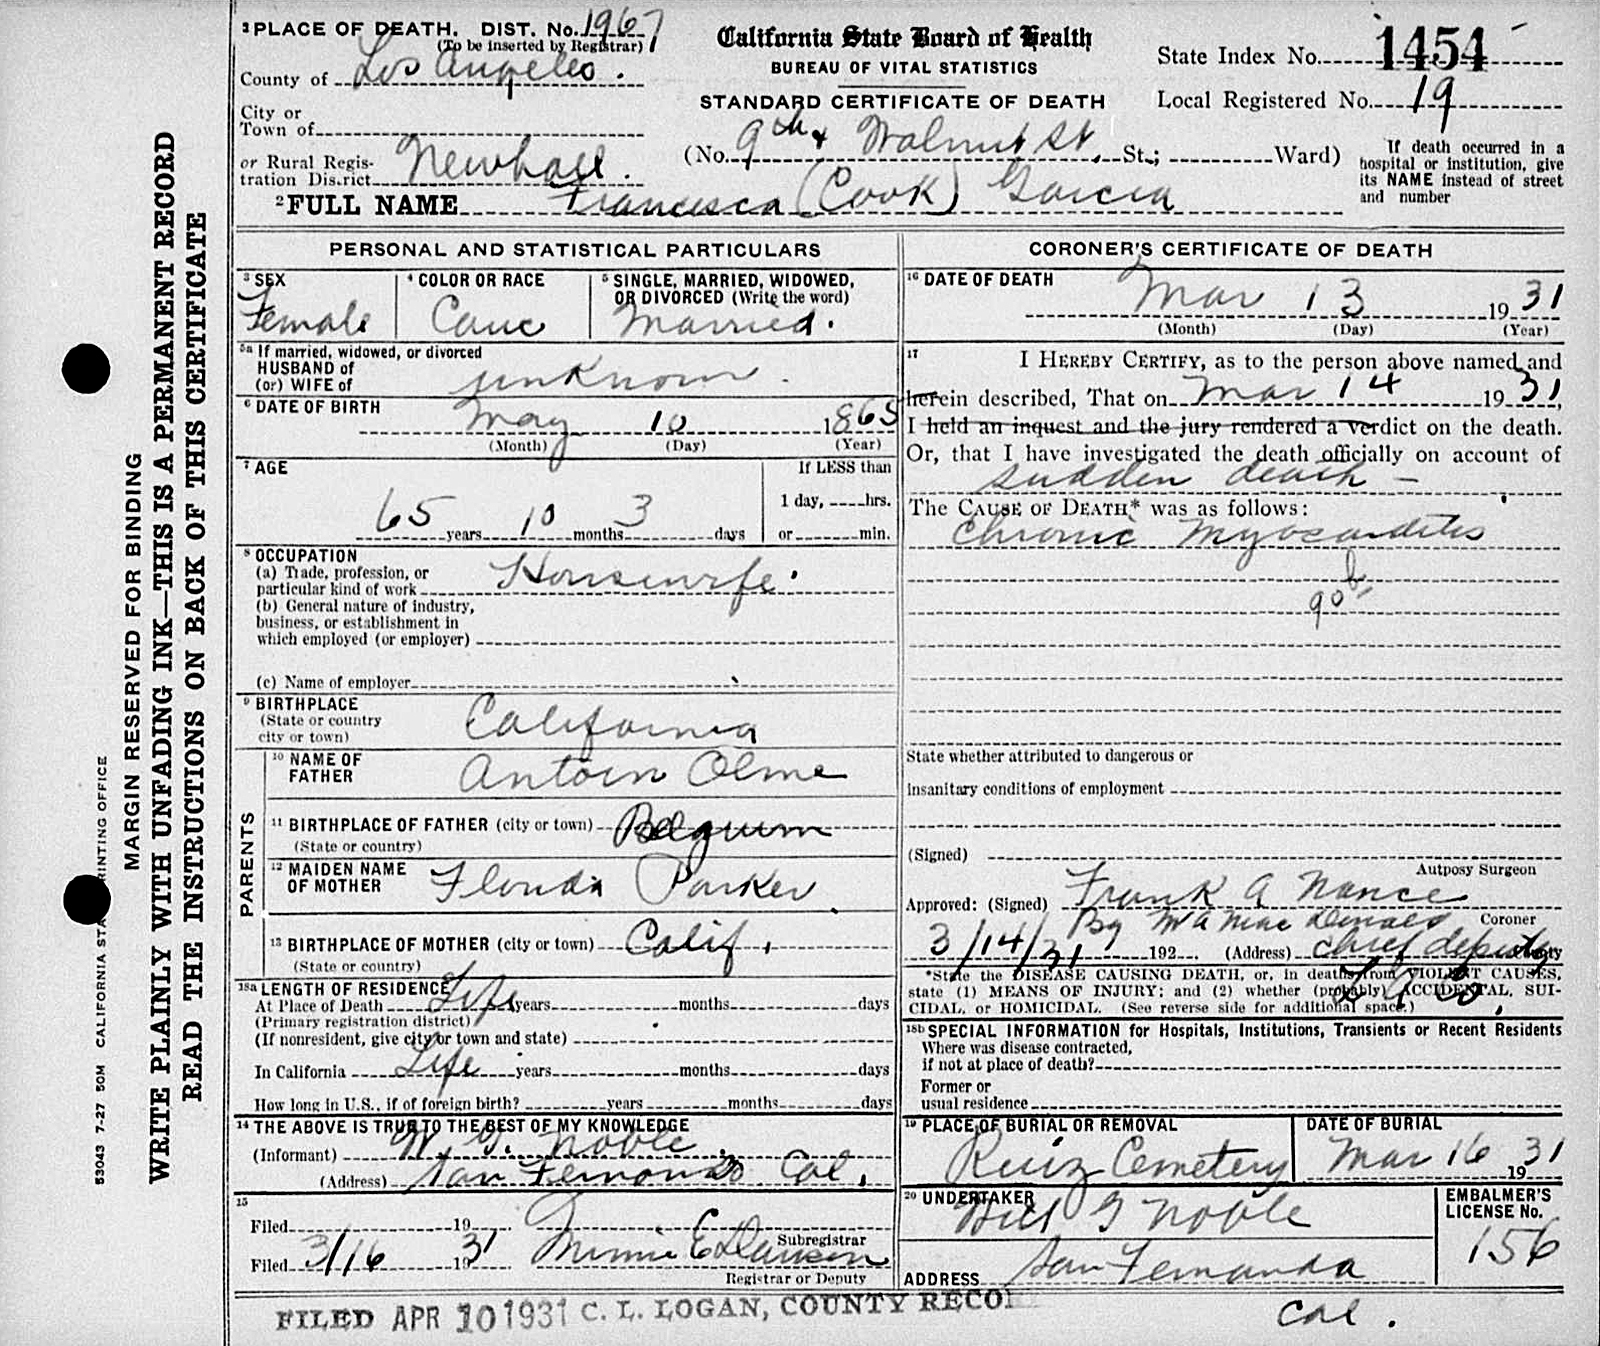 1 PLACE OF DEATH. DIST. No. 1967
(To be inserted by Registrar)
County of Los Angeles.
City or
Town of
or Rural Regis-
tration District Newhall.
California State Board of Health
BUREAU OF VITAL STATISTICS
STANDARD CERTIFICATE OF DEATH
(No. 9th & Walnut St. St.; Ward)
State Index No. 1454
Local Registered No. 19
If death occurred in a
hospital or institution, give
its NAME instead of street
and number
2 FULL NAME Francisca (Cook) Garcia
PERSONAL AND STATISTICAL PARTICULARS
3 SEX
Female
4 COLOR OR RACE
Cauc
5 SINGLE, MARRIED, WIDOWED,
OR DIVORCED (Write the word)
Married.
5a If married, widowed, or divorced
HUSBAND of
(or) WIFE of unknown.
6 DATE OF BIRTH
May 10 1865
(Month) (Day) (Year)
7 AGE
65 years 10 months 3 days
If LESS than
1 day, hrs.
or min.
8 OCCUPATION
(a) Trade, profession, or
particular kind of work Housewife.
(b) General nature of industry,
business, or establishment in
which employed (or employer)
(c) Name of employer
9 BIRTHPLACE
(State or country
city or town)
California
PARENTS
10 NAME OF
FATHER Antoin Olme
11 BIRTHPLACE OF FATHER (city or town) Belguim
(State or country)
12 MAIDEN NAME
OF MOTHER Florida Parker
13 BIRTHPLACE OF MOTHER (city or town) Calif.
(State or country)
13a LENGTH OF RESIDENCE
At Place of Death Life years months days
(Primary registration district)
(If nonresident, give city or town and state)
In California Life years months days
How long in U.S., if of foreign birth? years months days
14 THE ABOVE IS TRUE TO THE BEST OF MY KNOWLEDGE
(Informant) W. G. Noble
(Address) San Fernando Cal.
15
Filed 19
Subregistrar
Filed 3/16 1931 Minnie E Dawson
Registrar or Deputy
CORONER'S CERTIFICATE OF DEATH
16 DATE OF DEATH
Mar 13 1931
(Month) (Day) (Year)
17 I HEREBY CERTIFY, as to the person above named and
herein described, That on Mar 14 1931,
I held an inquest and the jury rendered a verdict on the death.
Or, that I have investigated the death officially on account of
sudden death -
The CAUSE OF DEATH* was as follows:
Chronic Myocarditis
90b
State whether attributed to dangerous or
insanitary conditions of employment
(Signed)
Autposy Surgeon
Approved: (Signed) Frank A Nance
Coroner
By Wm A MacDonald
3/14/31 192 (Address) chief deputy
L A Co.
*State the DISEASE CAUSING DEATH, or, in deaths from VIOLENT CAUSES,
state (1) MEANS OF INJURY; and (2) whether (probably) ACCIDENTAL, SUI-
CIDAL, or HOMICIDAL. (See reverse side for additional space.)
18b SPECIAL INFORMATION for Hospitals, Institutions, Transients or Recent Residents
Where was disease contracted,
if not at place of death?
Former or
usual residence
19 PLACE OF BURIAL OR REMOVAL
Ruiz Cemetery
DATE OF BURIAL
Mar 16 1931
20 UNDERTAKER
Bill G Noble
ADDRESS San Fernando
Cal.
EMBALMER'S
LICENSE No.
156
FILED APR 10 1931 C. L. LOGAN, COUNTY RECO
MARGIN RESERVED FOR BINDING
WRITE PLAINLY WITH UNFADING INK—THIS IS A PERMANENT RECORD
READ THE INSTRUCTIONS ON BACK OF THIS CERTIFICATE
53043 7-27 50M CALIFORNIA STA PRINTING OFFICE